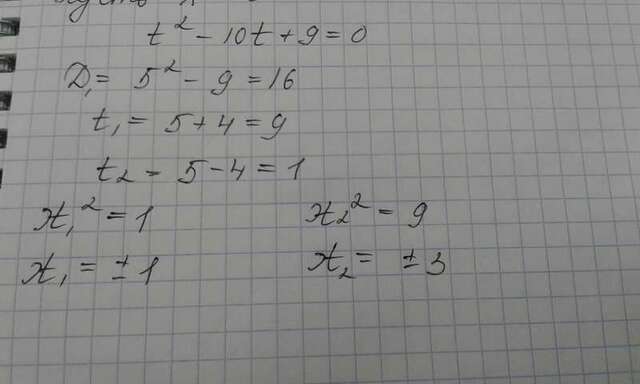 t² - 10t + 9 = 0
D₁ = 5² - 9 = 16
t₁ = 5 + 4 = 9
t₂ = 5 - 4 = 1
x₁² = 1 x₂² = 9
x₁ = ± 1 x₂ = ± 3